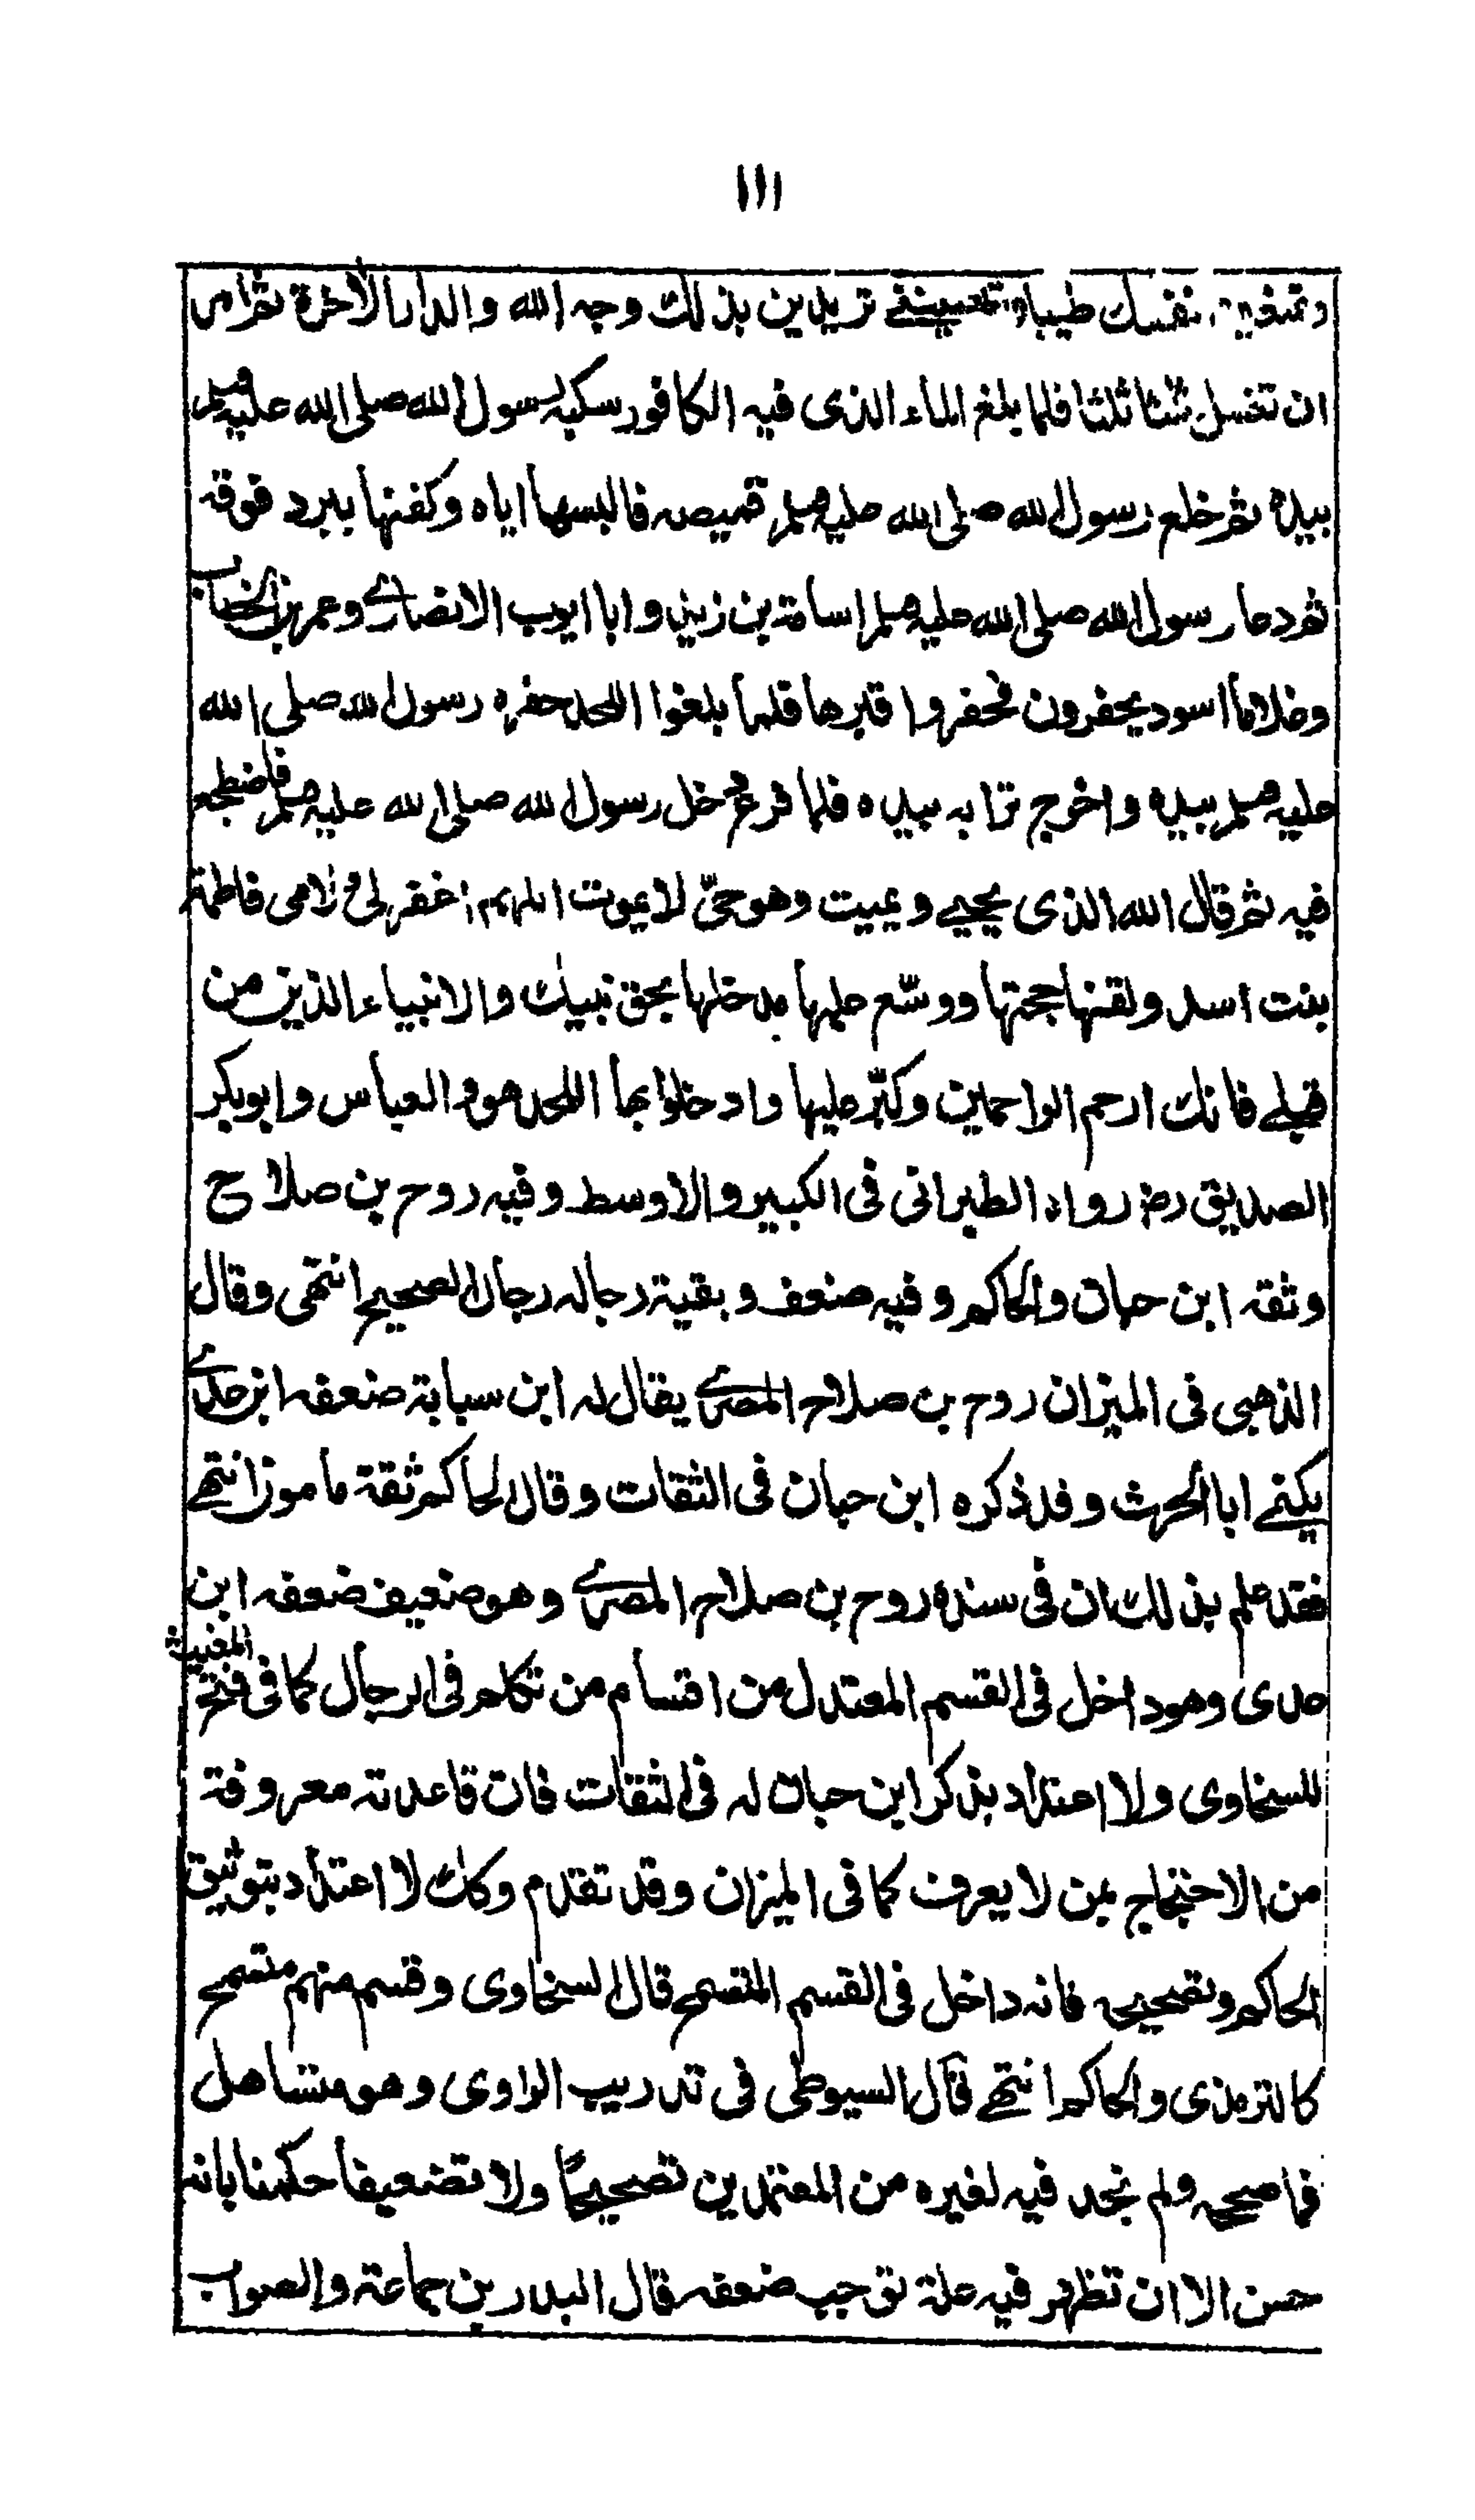 ١١١
وتمنعين نفسك طيبا وتطعميني تريدين بذلك وجه الله والدار الاخرة ثم امر
ان تغسل ثلثا ثلثا فلما بلغ الماء الذى فيه الكافور سكبه رسول الله صلى الله عليه وسلم
بيده ثم خلع رسول الله صلى الله عليه وسلم قميصه فالبسها اياه وكفنها ببرد فوقه
ثم دعا رسول الله صلى الله عليه وسلم اسامة بن زيد وابا ايوب الانصارے وعمر بن الخطاب
وغلاما اسود يحفرون فحفروا قبرها فلما بلغوا اللحد حفره رسول الله صلى الله
عليه وسلم بيده واخرج ترابه بيده فلما فرغ دخل رسول الله صلى الله عليه وسلم فاضطجع
فيه ثم قال الله الذى يحيي ويميت وهو حىّ لا يموت اللهم اغفر لى لامى فاطمة
بنت اسد ولقنها حجتها ووسّع عليها مدخلها بحق نبيك والانبياء الذين من
قبلے فانك ارحم الراحمين وكبّر عليها وادخلوا بها اللحد هو والعباس وابو بكر
الصديق رض رواه الطبرانى فى الكبير والاوسط وفيه روح بن صلاح
وثقه ابن حبان والحاكم وفيه ضعف وبقية رجاله رجال الصحيح انتهى وقال
الذهبى فى الميزان روح بن صلاح المصرے يقال له ابن سبابة ضعفه ابن عدے
يكنے ابا الحرث وقد ذكره ابن حبان فى الثقات وقال الحاكم ثقة مامون انتهے
فقد علم بذلك ان فى سنده روح بن صلاح المصرے وهو ضعيف ضعفه ابن
عدى وهو داخل فى القسم المعتدل من اقسام من تكلم فى الرجال كما فى فتح المغيث
للسخاوى ولا اعتداد بذكر ابن حبان له فى الثقات فان قاعدته معروفة
من الاحتجاج بمن لا يعرف كما فى الميزان وقد تقدم وكك لا اعتداد بتوثيق
الحاكم وتصحيحه فانه داخل فى القسم المتسمح قال السخاوى وقسم منهم متسمح
كالترمذى والحاكم انتهے قال السيوطى فى تدريب الراوى وهو متساهل
فما صححه ولم نجد فيه لغيره من المعتمدين تصحيحا ولا تضعيفا حكمنا بانه
حسن الا ان تظهر فيه علة توجب ضعفه قال البدر بن جماعة والصواب